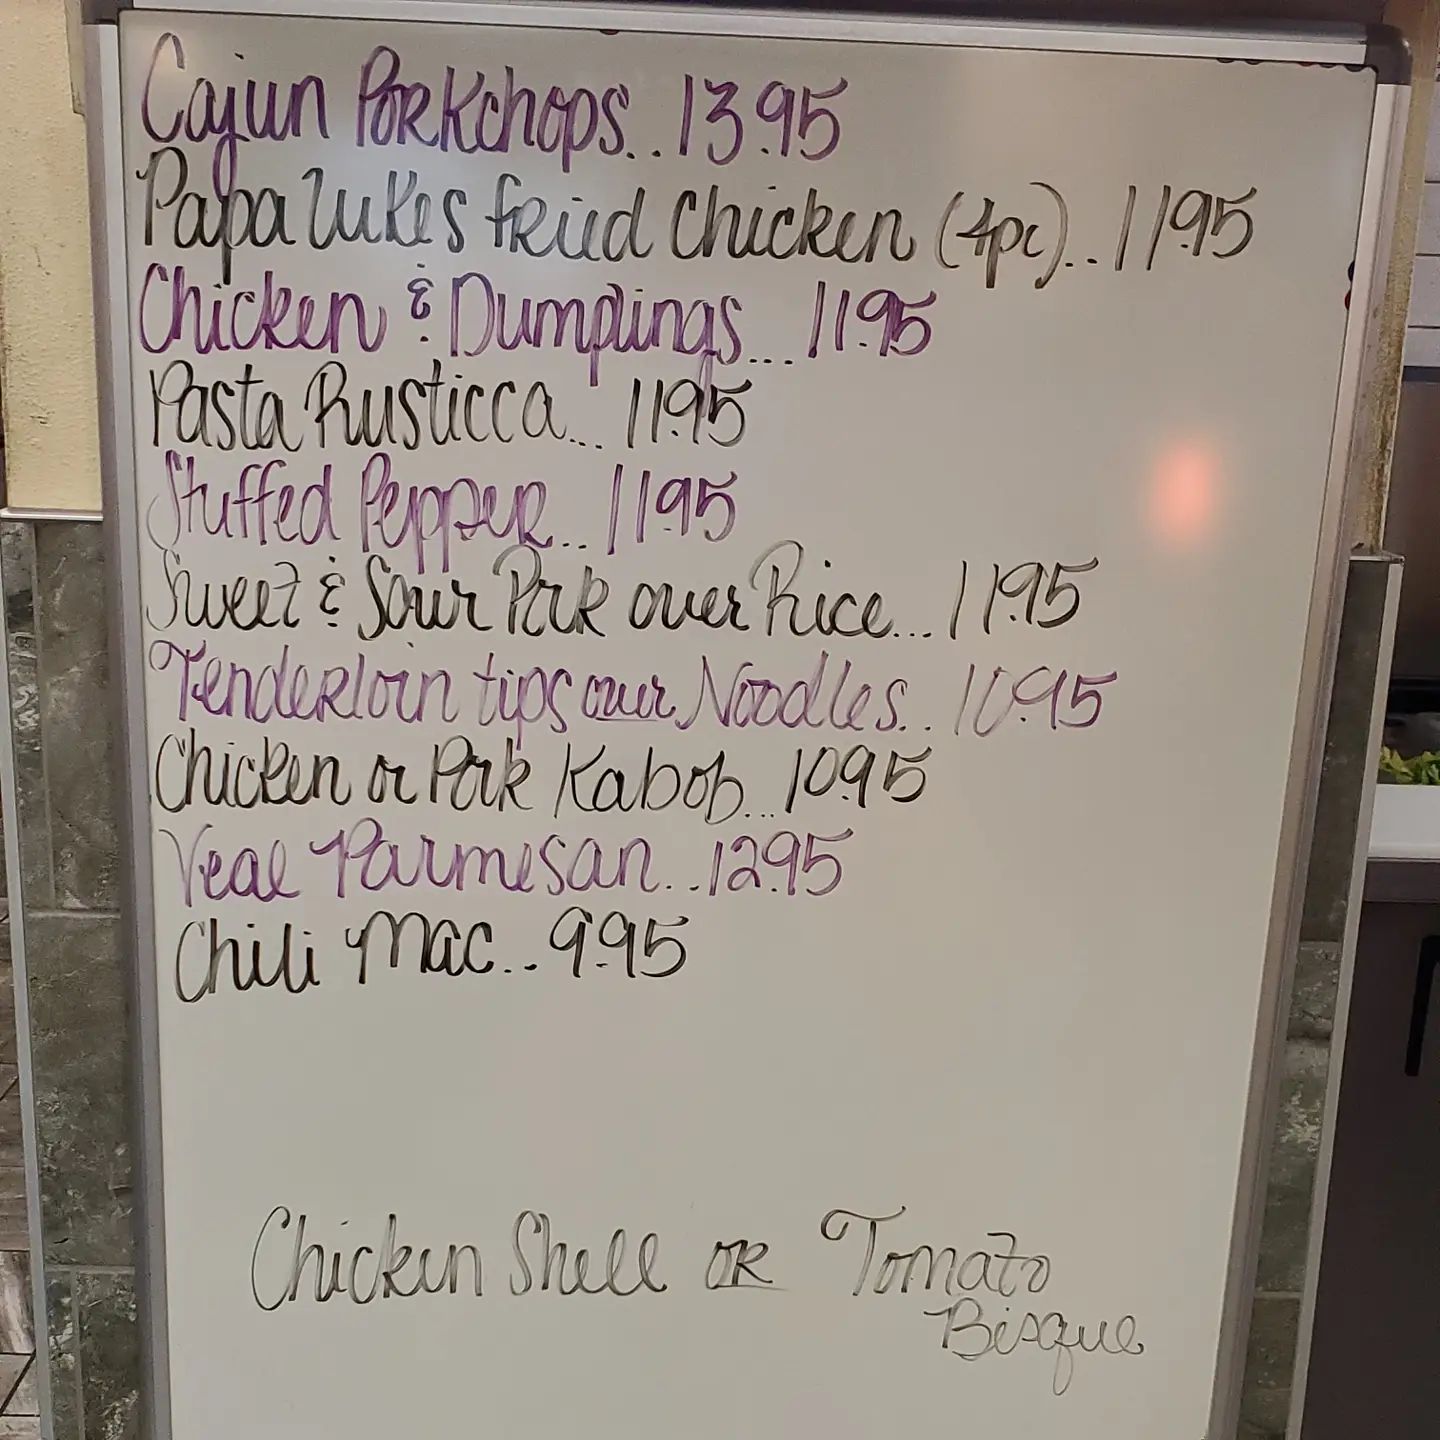 Cajun Porkchops..13.95
Papa Lukes fried Chicken (4pc)..11.95
Chicken & Dumplings...11.95
Pasta Rusticca...11.95
Stuffed Pepper..11.95
Sweet & Sour Pork over Rice...11.95
Tenderloin tips over Noodles..10.95
Chicken or Pork Kabob...10.95
Veal Parmesan..12.95
Chili Mac..9.95
Chicken Shell OR Tomato
Bisque